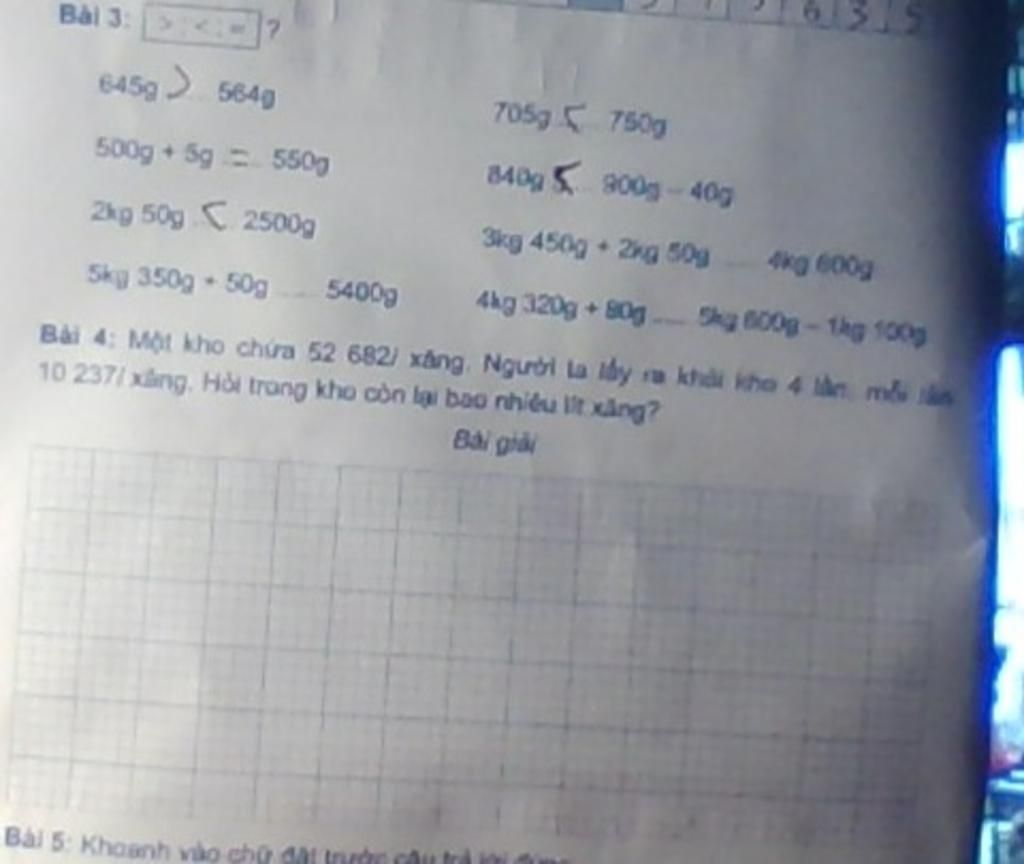 6 3 5
Bài 3: > ; < ; = ?
645g > 564g
705g < 750g
500g + 5g = 550g
840g < 900g - 40g
2kg 50g < 2500g
3kg 450g + 2kg 50g ..... 4kg 600g
5kg 350g + 50g ..... 5400g
4kg 320g + 80g ..... 5kg 600g - 1kg 100g
Bài 4: Một kho chứa 52 682l xăng. Người ta lấy ra khỏi kho 4 lần, mỗi lần
10 237l xăng. Hỏi trong kho còn lại bao nhiêu lít xăng?
Bài giải
Bài 5: Khoanh vào chữ đặt trước câu trả lời đúng